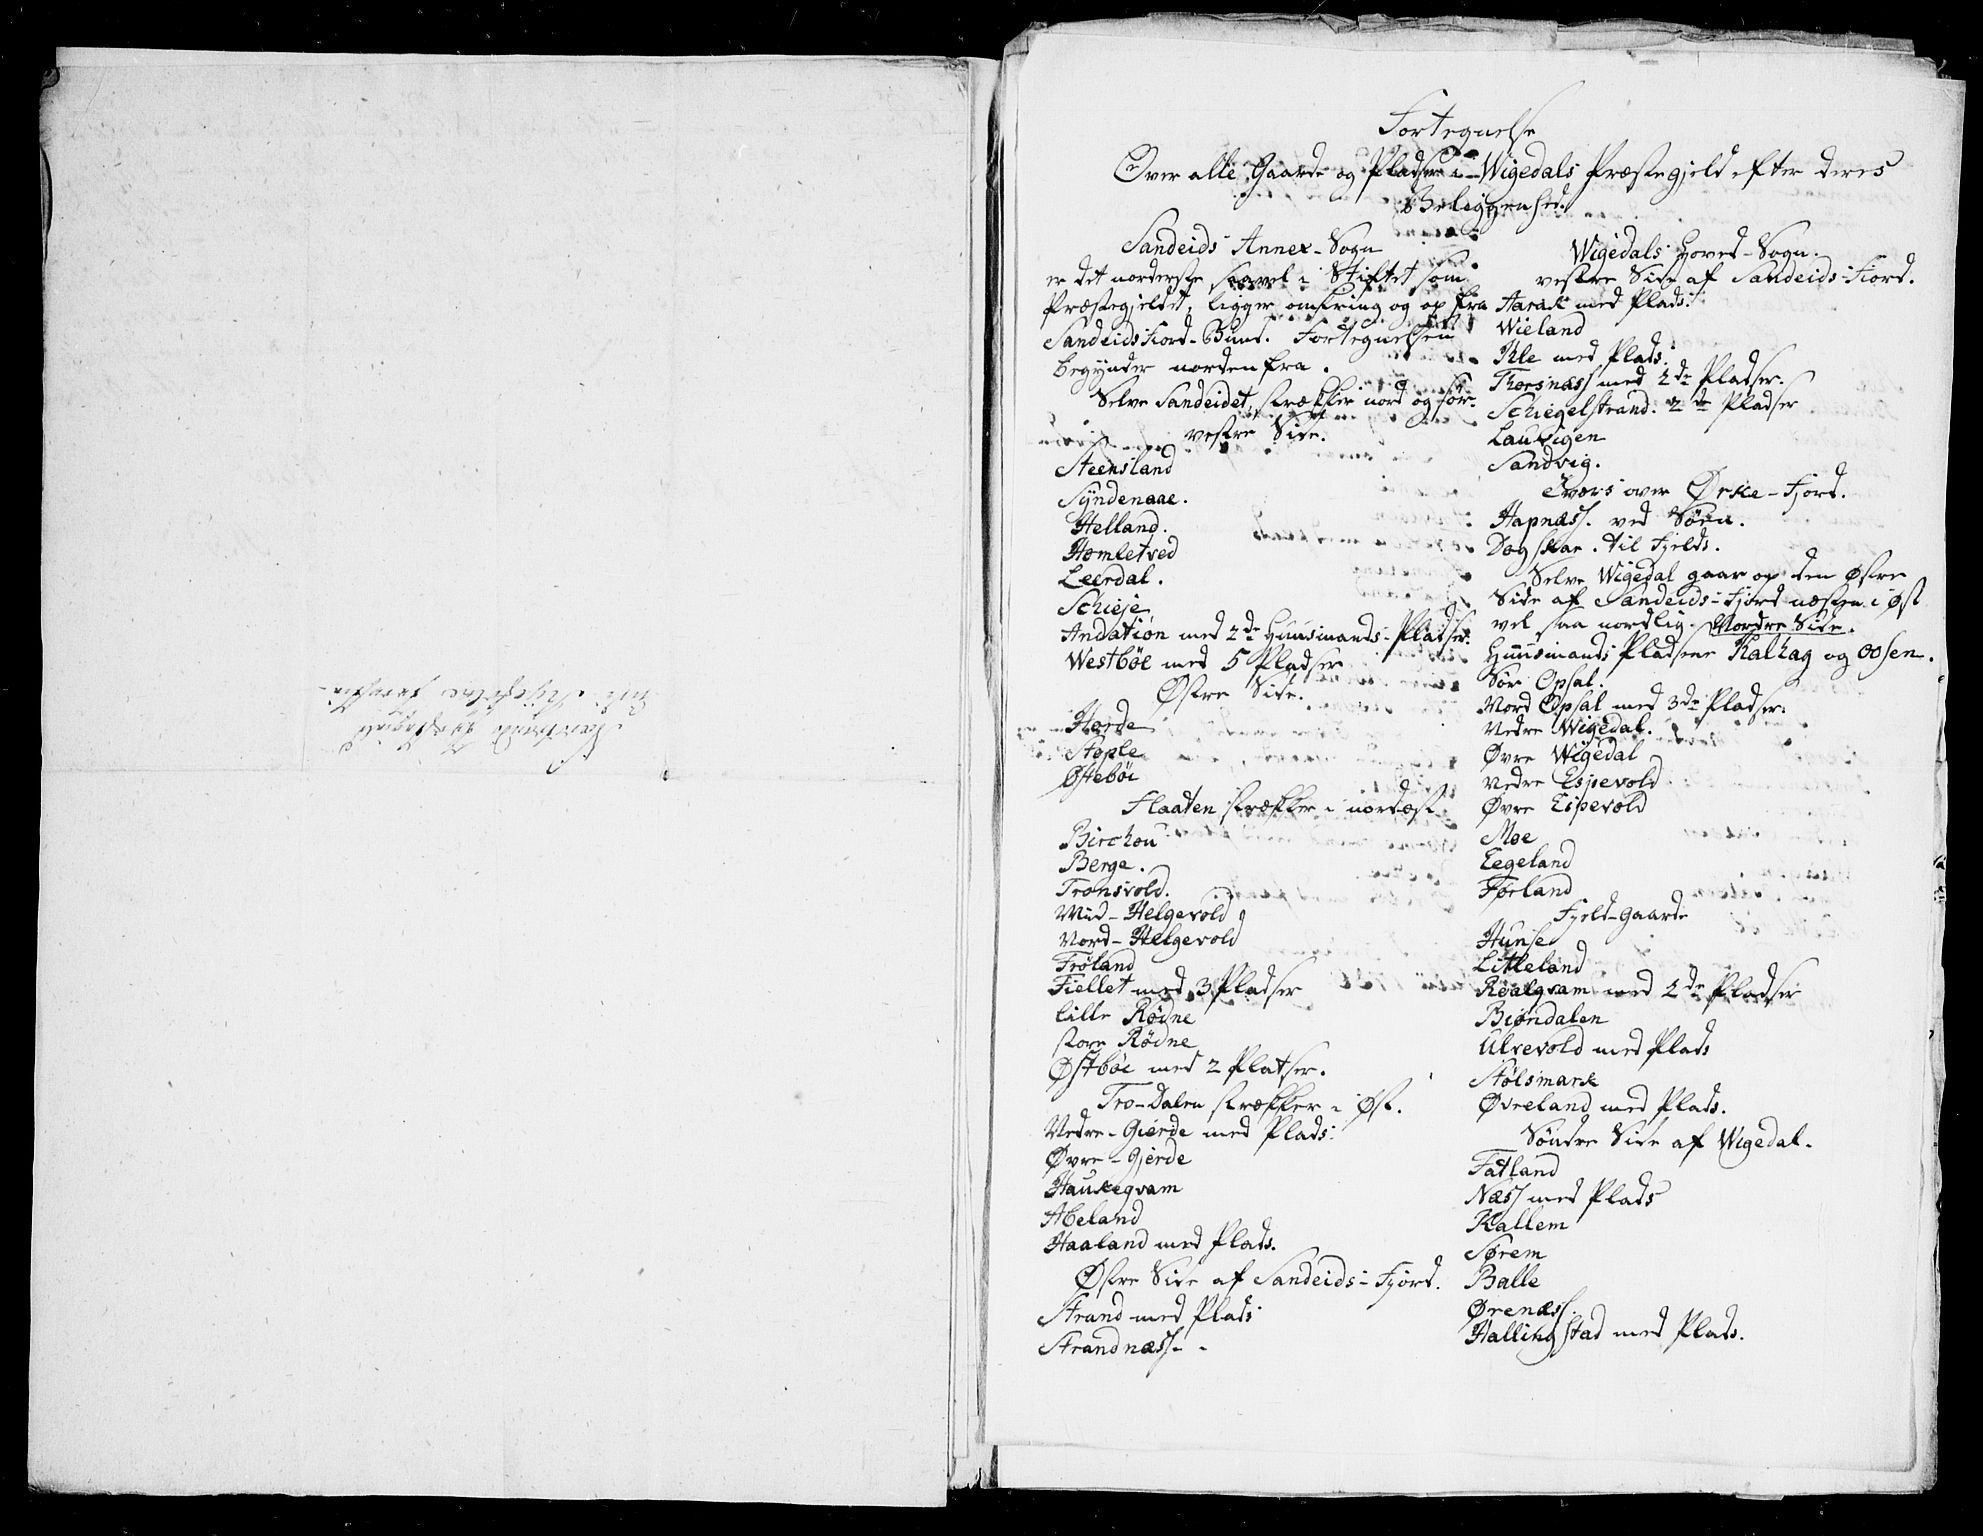 Fortegnelse
Over alle Gaarde og Pladser i Wigedals Præstegjeld efter deres
Beliggenhed.
Sandeids Annex-Sogn
er det norderste saavel i Stiftet som
Præstegjeldet, ligger omkring og op fra
Sandeids Fiord-Bund. Fortegnelsen
begynder norden fra.
Selve Sandeidet, strækker nord og sør.
vestre Side.
Steensland
Syndenaae.
Helland.
Homletved
Leerdal.
Schieje
Andatiøn med 2de Huusmands-Pladser.
Westbøe med 5 Pladser
Østre Side.
Hærde
Stople
Østebøe
Flaaten strækker i nordøst
Birchou
Berge.
Tronsvold.
Mid-Helgevold
Nord-Helgevold
Frøland
Fiellet med 3 Pladser
lille Rødne
store Rødne
Østbøe med 2 Platser.
Tro-Dalen strækker i Øst.
Nedre-Gierde med Plads.
Øvre-Gjerde
Haukeqvam
Abeland
Haaland med Plads.
Østre Side af Sandeids-Fjord.
Strand med Plads
Strandnæss.
Wigedals Hoved-Sogn.
vestre Side af Sandeids-Fiord.
Aarak med Plads.
Wieland
Ihle med Plads.
Thorsnæss med 2de Pladser.
Schiegelstrand. 2de Pladser
Lauvigen
Sandvig.
Tværs over Ørke-Fjord.
Hapnæss. ved Søen.
Dagskar. til Fjelds.
Selve Wigedal gaar op den Østre
Side af Sandeids-Fjord næsten i Øst
vel saa nordlig. Nordre Side.
Huusmands Pladsene Kalhag og Oosen.
Sør Opsal.
Nord Opsal med 3de Pladser.
Nedre Wigedal.
Øvre Wigedal
Nedre Espevold
Øvre Espevold
Moe
Eegeland
Førland
Fjeld-Gaarde
Hunse
Litleland
Røalqvam med 2de Pladser
Biøndalen
Ulvevold med Plads
Stølsmark
Øvreland med Plads.
Søndre Side af Wigedal.
Fatland
Næss med Plads
Kallem
Sørem
Balle
Ørenæss.
Hallingstad med Plads.